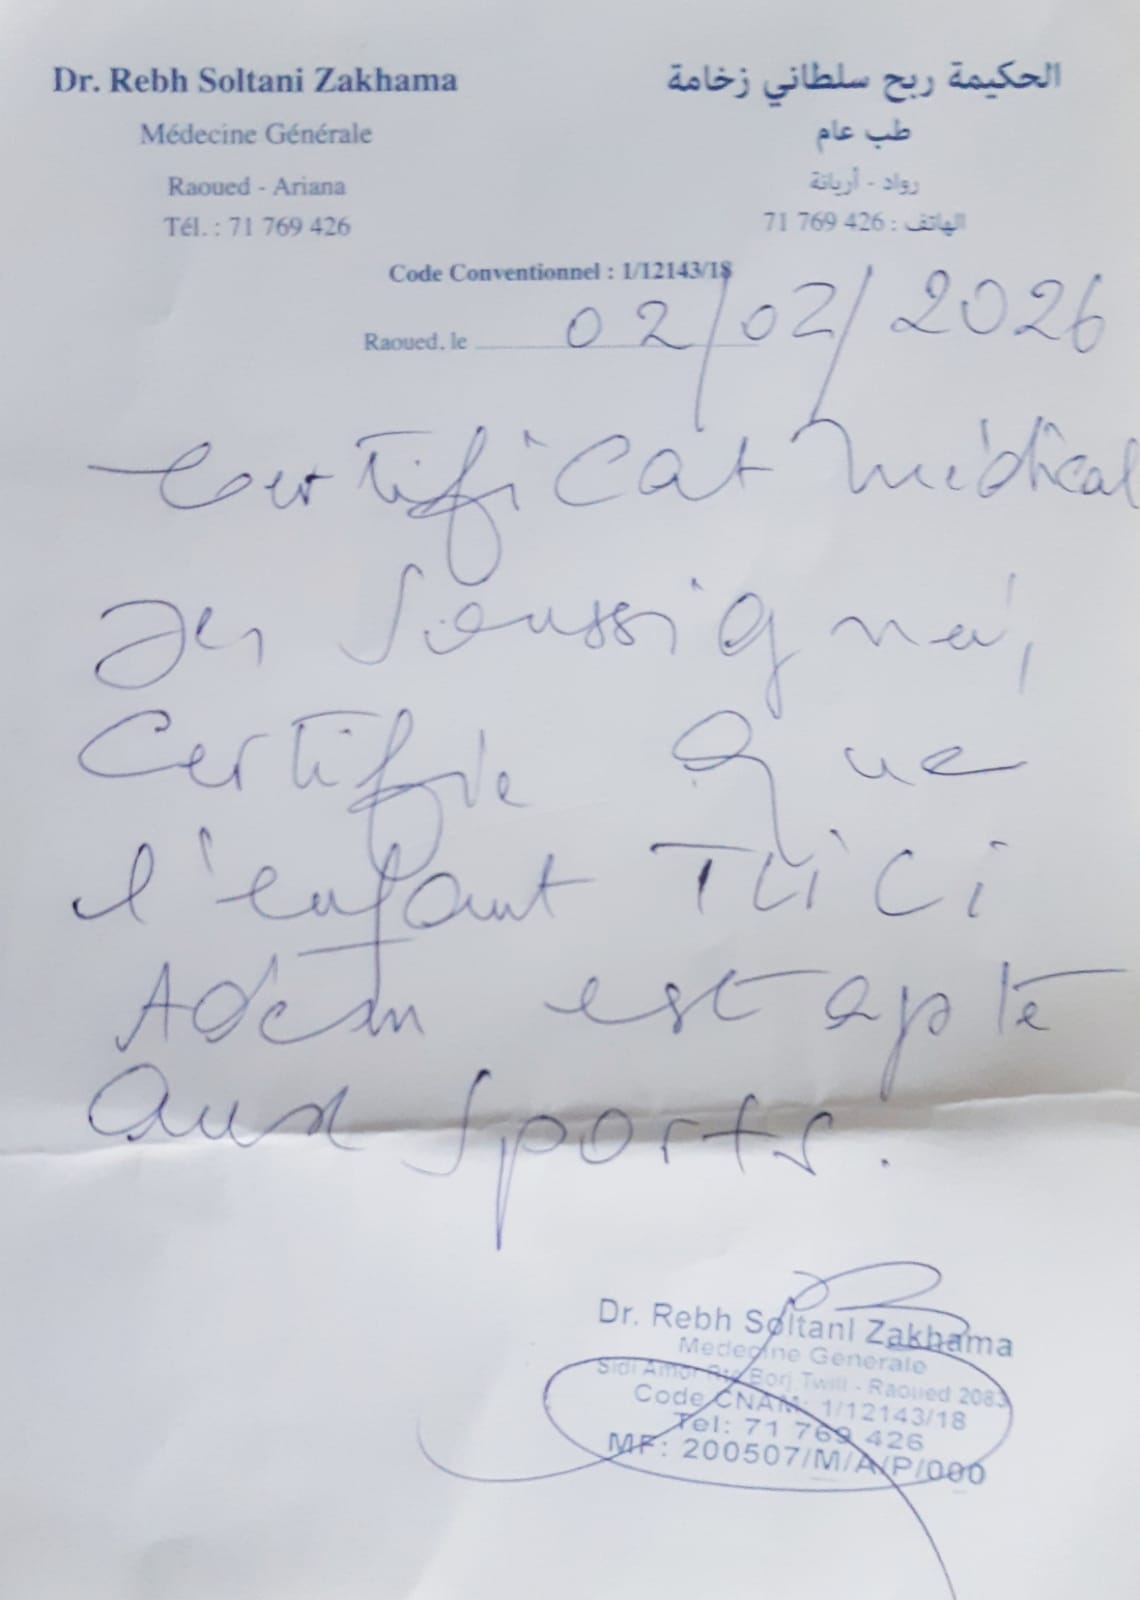 Dr. Rebh Soltani Zakhama
Médecine Générale
Raoued - Ariana
Tél. : 71 769 426
الحكيمة ربح سلطاني زخامة
طب عام
رواد - أريانة
الهاتف : 426 769 71
Code Conventionnel : 1/12143/18
Raoued, le 02/02/2026
Certificat médical
Je, soussigné,
Certifie que
l'enfant Tlili
Adem est apte
aux sports.
Dr. Rebh Soltani Zakhama
Medecine Generale
Sidi Amor Rte Borj Twill - Raoued 2083
Code CNAM: 1/12143/18
Tel: 71 769 426
MF: 200507/M/A/P/000